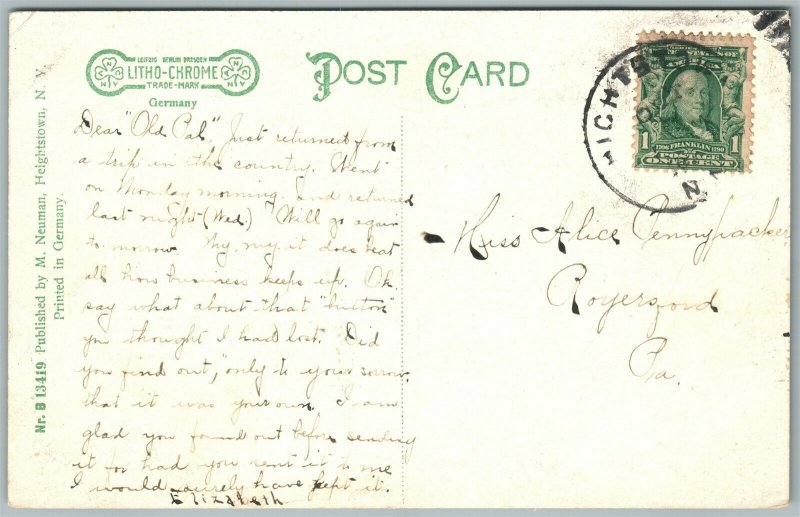 LEIPZIG BERLIN DRESDEN
LITHO-CHROME
TRADE-MARK
N Y
N Y
Germany
POST CARD
Nr. B 13419 Published by M. Neuman, Heightstown, N. Y.
Printed in Germany.
HICHTS
N
1
1
1706 FRANKLIN 1790
POSTAGE
ONE CENT
Dear "Old Pal". Just returned from
a trip in the country. Went
on Monday morning and returned
last night (Wed.) Will go again
to morrow. My, my it does beat
all how business keeps up. Oh
say what about that "button"
you thought I had lost. Did
you find out, "only to your sorrow,
that it was your own. I am
glad you found out before sending
it for had you sent it to me
I would surely have kept it.
Elizabeth
Miss Alice Pennypacker
Royersford
Pa.